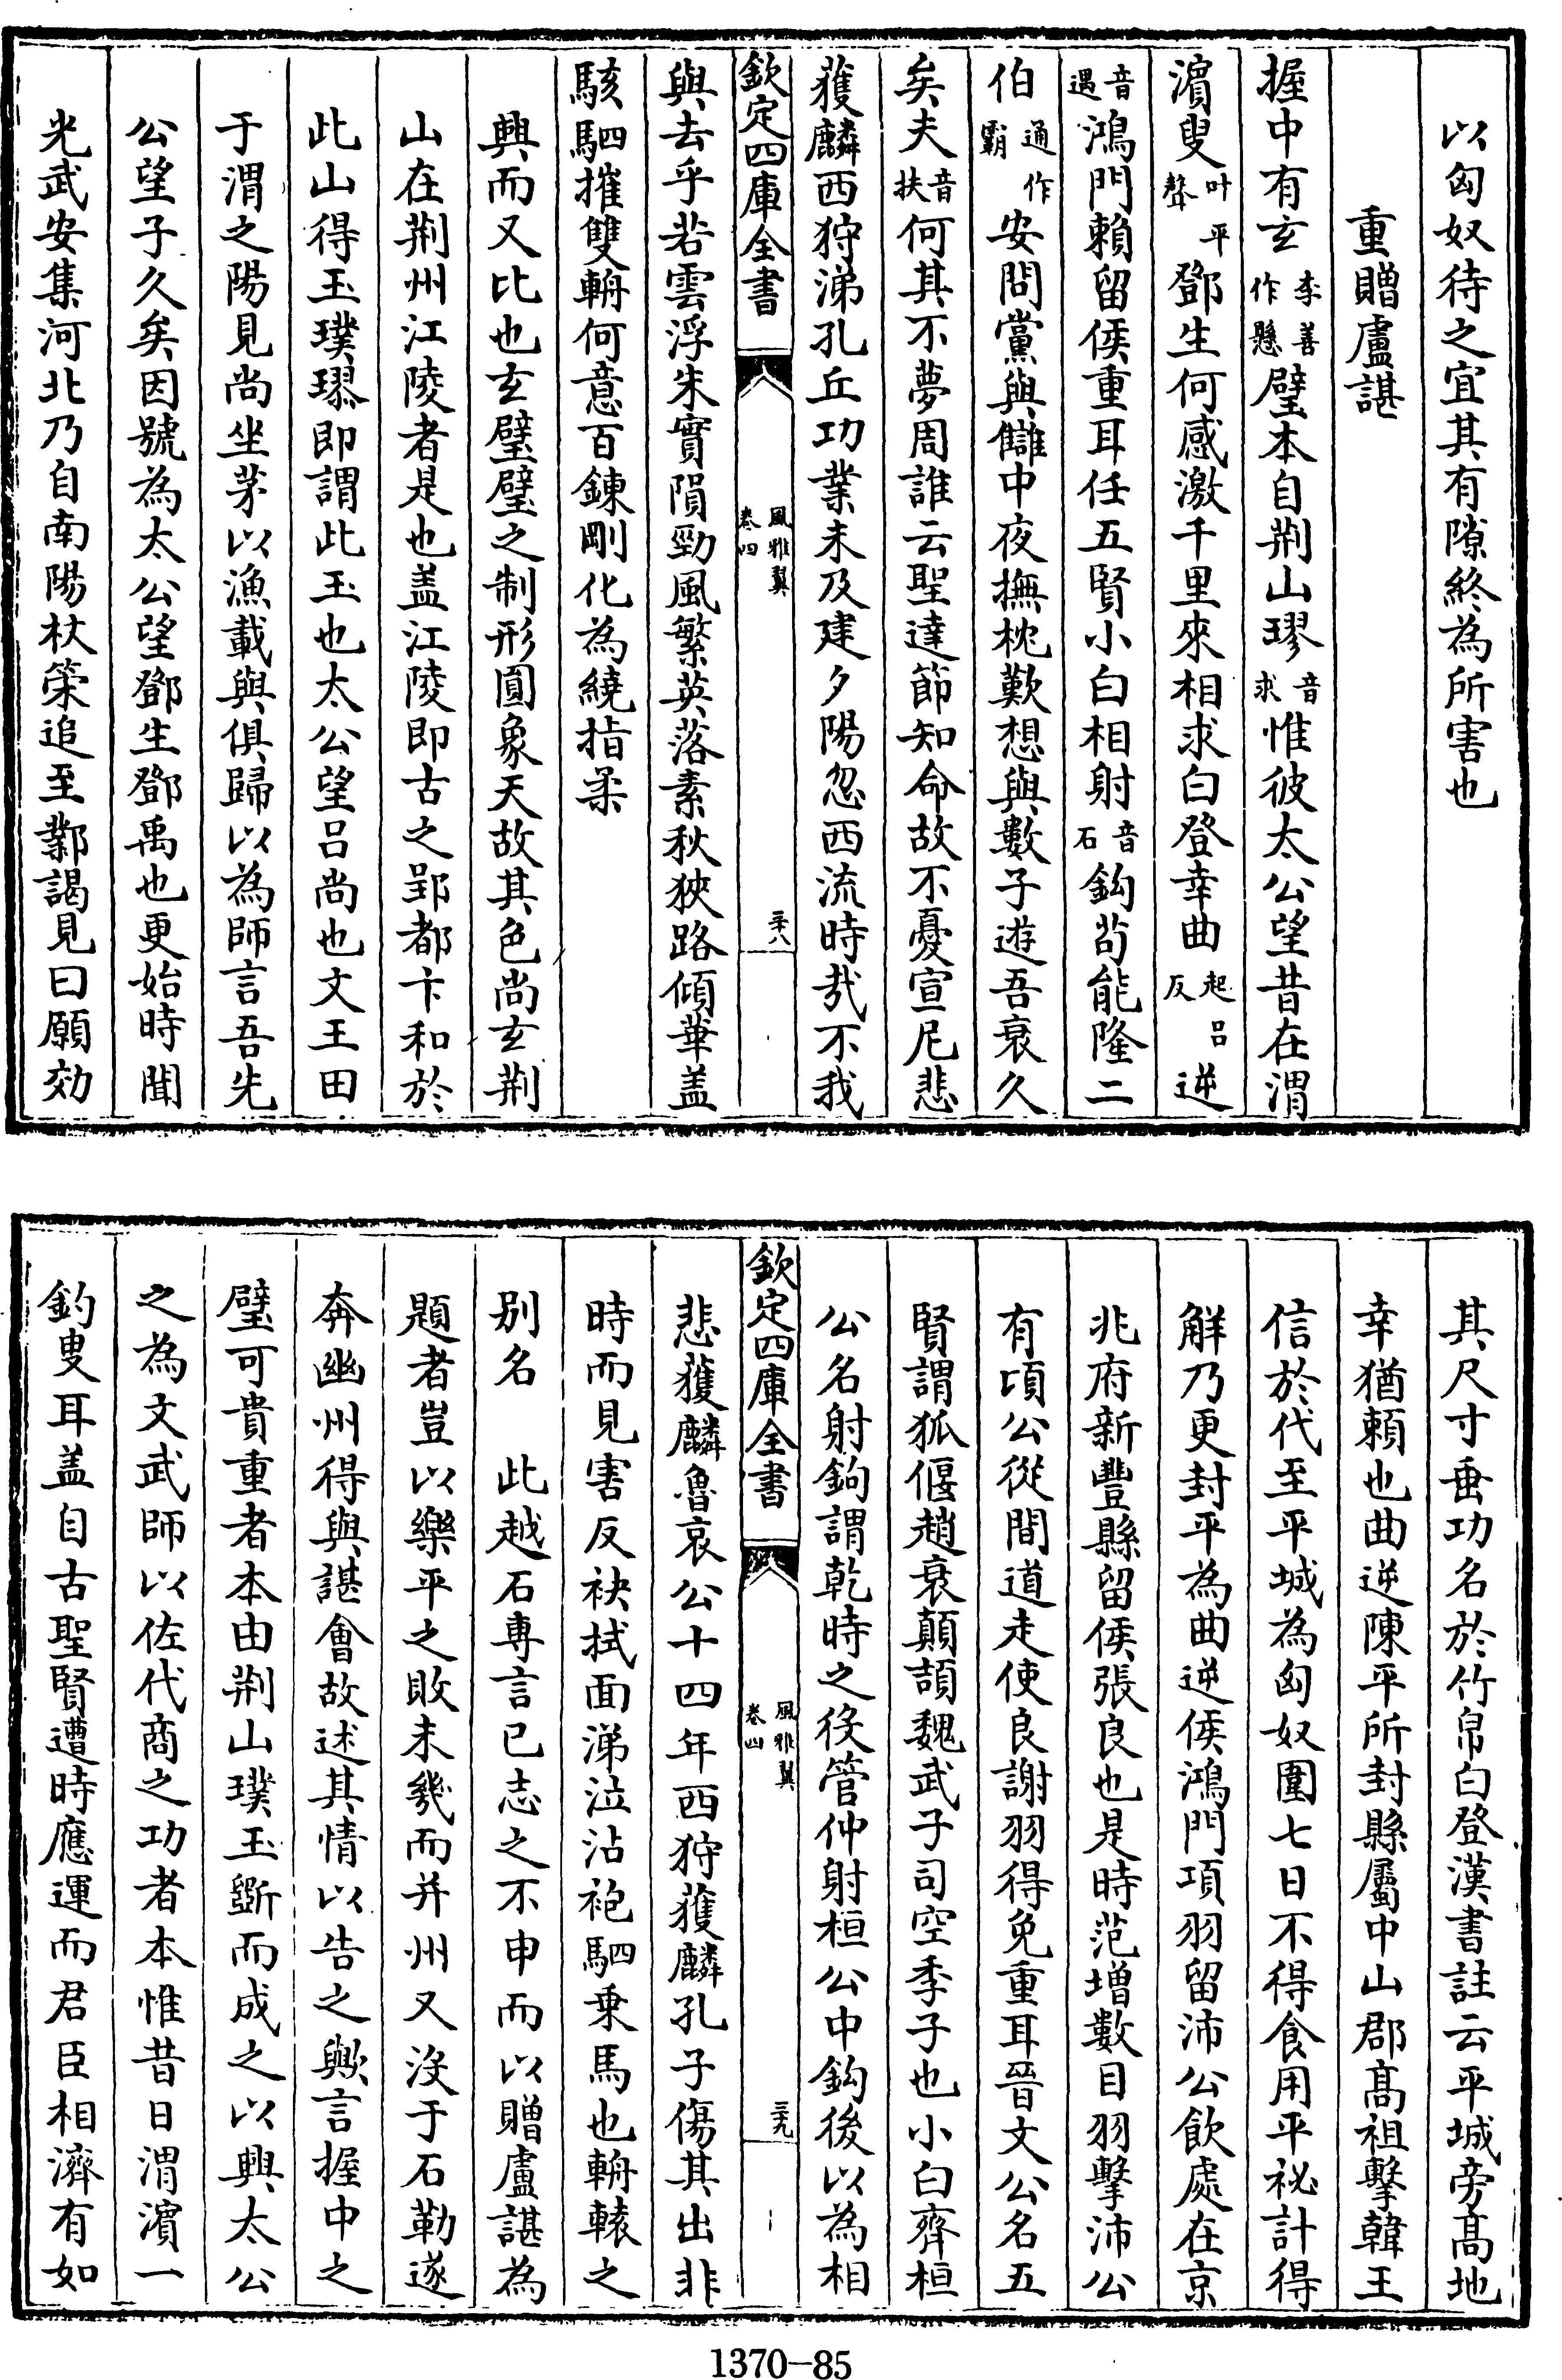 以匈奴待之宜其有隙終為所害也
重贈盧諶
握中有玄李善作懸璧本自荆山璆音求惟彼太公望昔在渭
濵叟叶平聲鄧生何感激千里來相求白登幸曲起呂反逆
音遇鴻門賴留侯重耳任五賢小白相射音石鈎苟能隆二
伯通作霸安問黨與讎中夜撫枕歎想與數子遊吾衰久
矣夫音扶何其不夢周誰云聖達節知命故不憂宣尼悲
獲麟西狩涕孔丘功業未及建夕陽忽西流時哉不我
欽定四庫全書
風雅翼
卷四
三十八
與去乎若雲浮朱實隕勁風繁英落素秋狹路傾華盖
駭駟摧雙輈何意百鍊剛化為繞指柔
興而又比也玄璧璧之制形圓象天故其色尚玄荆
山在荆州江陵者是也盖江陵即古之郢都卞和於
此山得玉璞璆即謂此玉也太公望吕尚也文王田
于渭之陽見尚坐茅以漁載與俱歸以為師言吾先
公望子久矣因號為太公望鄧生鄧禹也更始時聞
光武安集河北乃自南陽杖策追至鄴謁見曰願效
其尺寸垂功名於竹帛白登漢書註云平城旁髙地
幸猶賴也曲逆陳平所封縣屬中山郡髙祖擊韓王
信於代至平城為匈奴圍七日不得食用平祕計得
解乃更封平為曲逆侯鴻門項羽留沛公飲處在京
兆府新豐縣留侯張良也是時范增數目羽擊沛公
有頃公從間道走使良謝羽得免重耳晉文公名五
賢謂狐偃趙衰顛頡魏武子司空季子也小白齊桓
公名射鉤謂乾時之役管仲射桓公中鈎後以為相
欽定四庫全書
風雅翼
卷四
三十九
悲獲麟魯哀公十四年西狩獲麟孔子傷其出非
時而見害反袂拭面涕泣沾袍駟乗馬也輈轅之
别名　此越石専言已志之不申而以贈盧諶為
題者豈以樂平之敗未幾而并州又没于石勒遂
奔幽州得與諶會故述其情以告之歟言握中之
璧可貴重者本由荆山璞玉斵而成之以興太公
之為文武師以佐代商之功者本惟昔日渭濵一
釣叟耳盖自古聖賢遭時應運而君臣相濟有如
1370-85